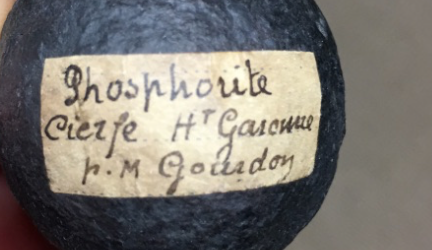 Phosphorite
Cierfe Hᵗ Garonne
p. M Gourdon